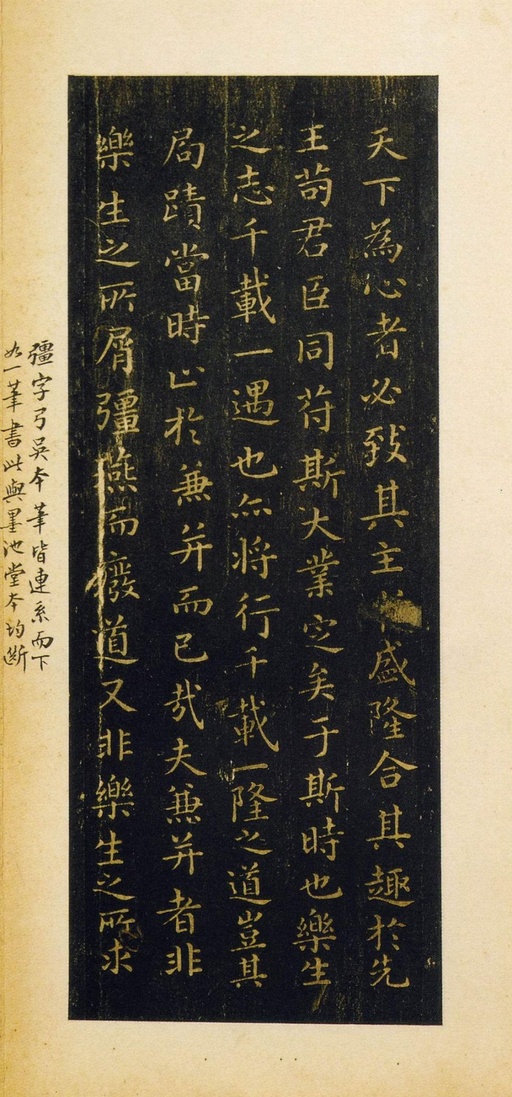 天下為心者必致其主於盛隆合其趣於先
王苟君臣同苻斯大業定矣于斯時也樂生
之志千載一遇也亦将行千載一隆之道豈其
局蹟當時止於兼并而已哉夫兼并者非
樂生之所屑彊燕而癈道又非樂生之所求
彊字弓吳本筆皆連系而下
如一筆書此與墨池堂本均斷